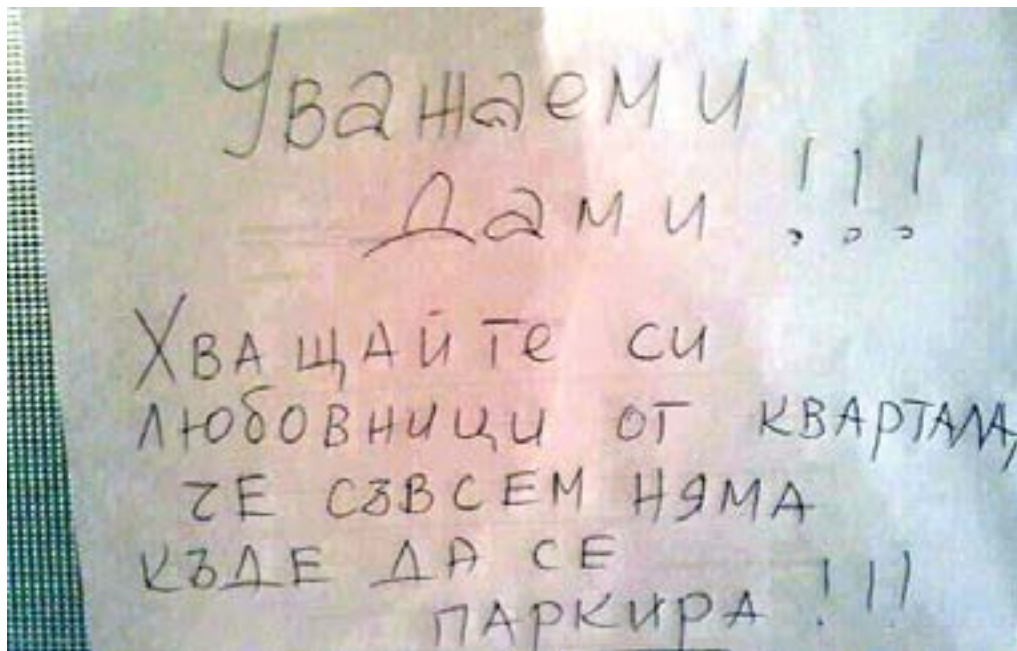 Уважаеми
Дами !!!
ХВАЩАЙТе си
ЛЮБОВНИЦИ ОТ КВАРТАЛА,
ЧЕ СЪВСЕМ НЯМА
КЪДЕ ДА СЕ
ПАРКИРА !!!